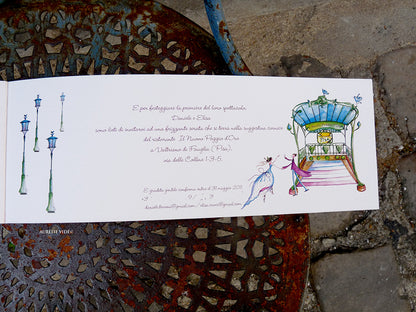 E per festeggiare la première del loro spettacolo
Daniele e Elisa
sono lieti di invitarvi ad una frizzante serata che si terrà nella suggestiva cornice
del ristorante Il Nuovo Poggio d'Oro
a Valtriano di Fauglia (Pisa),
via delle Colline 1-3-5.
È gradita gentile conferma entro il 31 maggio 2011
AURELIE VIDEL